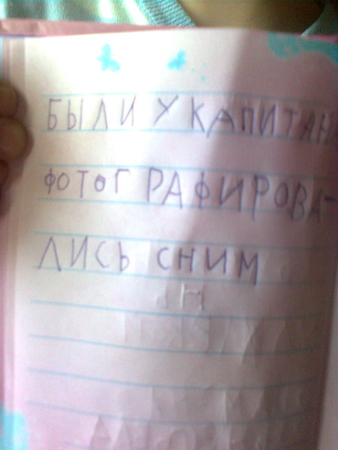 БЫЛИ У КАПИТАНА
ФОТОГРАФИРОВА-
ЛИСЬ СНИМ
Н